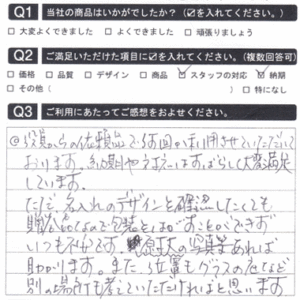 Q1 当社の商品はいかがでしたか？（☑を入れてください。）
□ 大変よくできました □ よくできました □ 頑張りましょう
Q2 ご満足いただけた項目に☑を入れてください。（複数回答可）
□ 価格 □ 品質 □ デザイン □ 商品 ☑ スタッフの対応 ☑ 納期
□ その他（ ） □ 特になし
Q3 ご利用にあたってご感想をおよせください。
役員からの依頼品で何回か利用させていただいて
おります。納期や すばらしく大変満足
しています。
ただ、名入れのデザインを確認したくても
贈答品なので包装をはがすことができず
いつも不安です。 の写真があれば
助かります。また、位置もグラスの底など
別の場所も考えていただければと思います